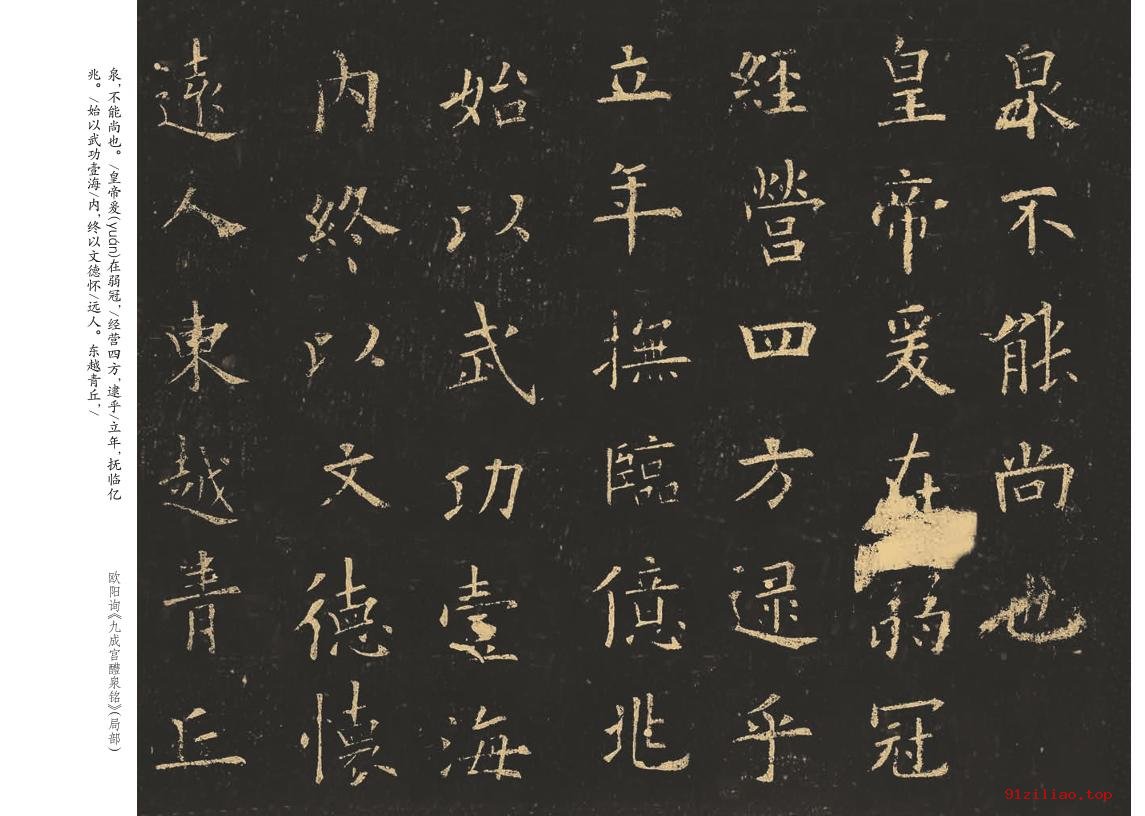 泉不能尚也
皇帝爰在弱冠
經營四方逮乎
立年撫臨億兆
始以武功壹海
内終以文德懷
遠人東越青丘
泉，不能尚也。/皇帝爰(yuán)在弱冠，/经营四方，逮乎/立年，抚临亿
兆。/始以武功壹海/内，终以文德怀/远人。东越青丘，/
欧阳询《九成宫醴泉铭》(局部)
91ziliao.top